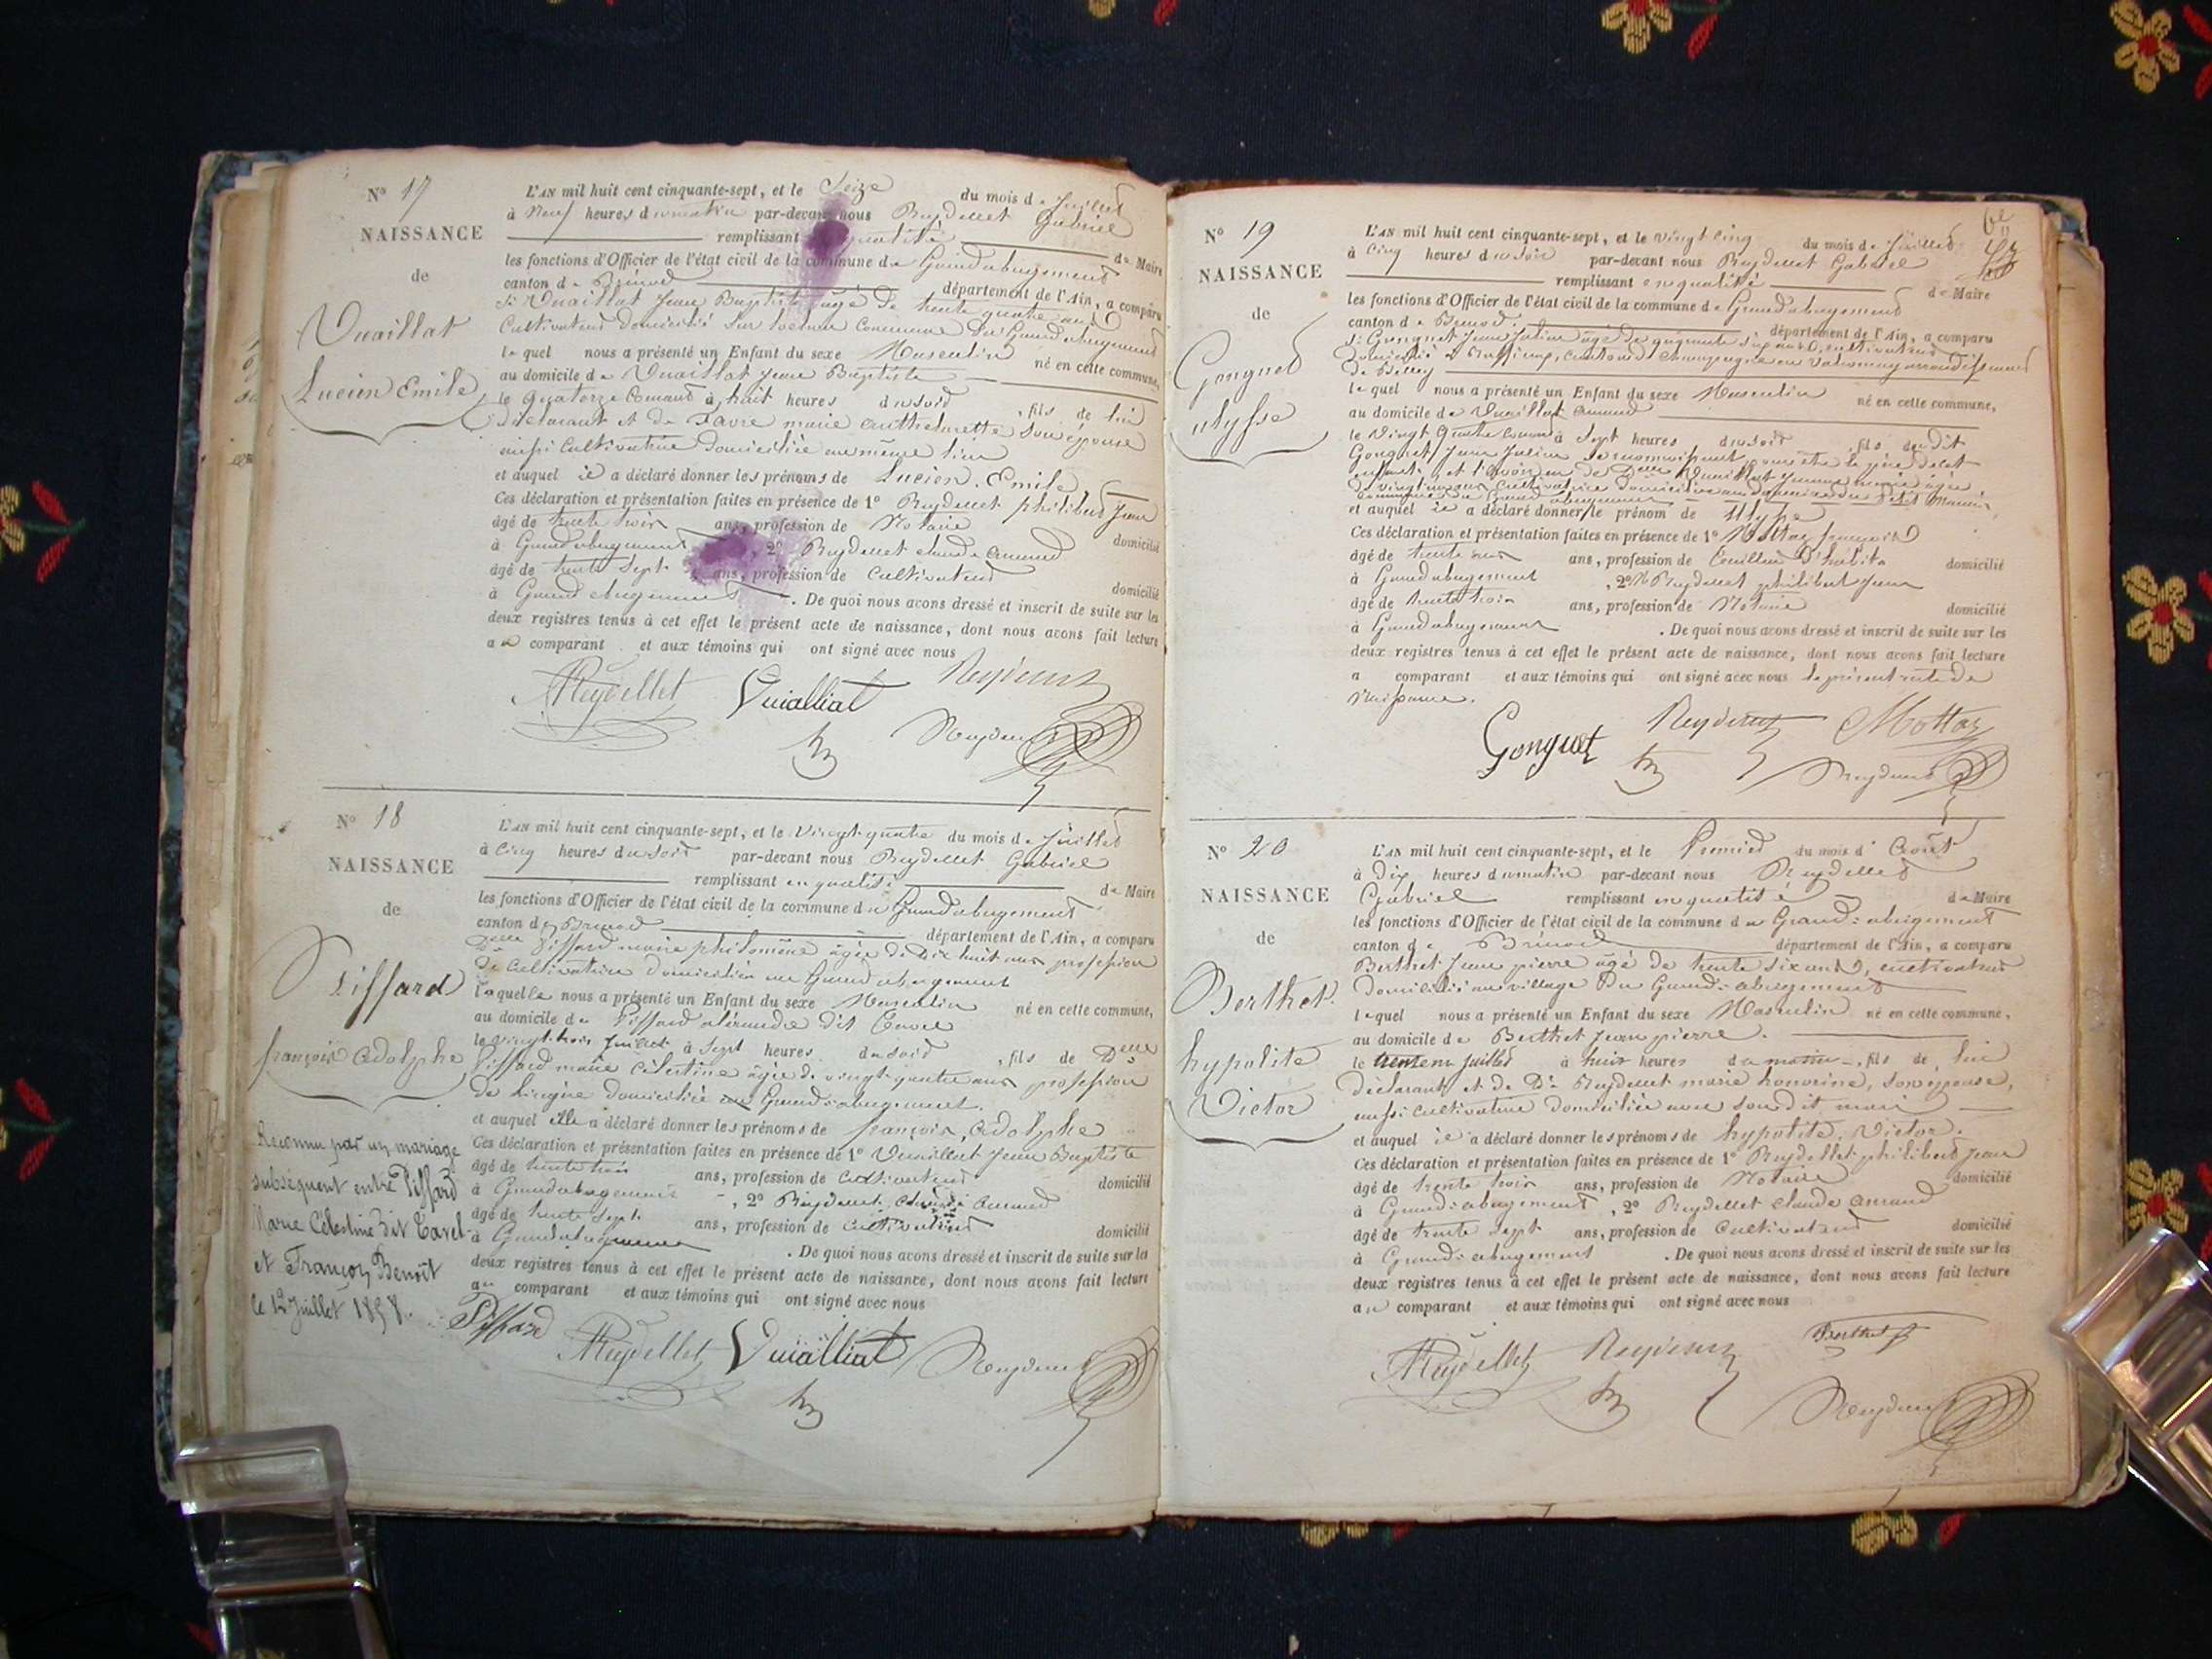 N° 17
NAISSANCE
de
Vuaillat
Lucien Emile
L'AN mil huit cent cinquante-sept, et le Seize du mois de Juillet
à Neuf heures du matin par-devant nous Reydellet Gabriel
remplissant qualité de Maire
les fonctions d'Officier de l'état civil de la commune du Grandabergement
canton de Brénod département de l'Ain, a comparu
Sr Vuaillat Jean Baptiste âgé de trente quatre ans
Cultivateur domicilié sur commune du Grandabergement
lequel nous a présenté un Enfant du sexe Masculin né en cette commune,
au domicile de Vuaillat Jean Baptiste
le quatorze courant à huit heures du soir, fils de lui
déclarant et de Favre marie son épouse
aussi Cultivatrice domiciliée au même lieu
et auquel il a déclaré donner les prénoms de Lucien, Emile
Ces déclaration et présentation faites en présence de 1° Reydellet philibert Jean
âgé de trente trois ans, profession de Notaire domicilié
à Grandabergement 2° Reydellet claude armand
âgé de trente Sept ans, profession de Cultivateur domicilié
à Grandabergement. De quoi nous avons dressé et inscrit de suite sur les
deux registres tenus à cet effet le présent acte de naissance, dont nous avons fait lecture
au comparant et aux témoins qui ont signé avec nous
Reydellet Vuailliat Reydellet
Reydellet
N° 18
NAISSANCE
de
Piffard
françois Adolphe
Reconnu par un mariage
subséquent entre Piffard
Marie Célestine dit Cavet
et François Benoît
le 12 Juillet 1858.
L'AN mil huit cent cinquante-sept, et le vingt quatre du mois de Juillet
à Cinq heures du soir par-devant nous Reydellet Gabriel
remplissant en qualité de Maire
les fonctions d'Officier de l'état civil de la commune du Grandabergement
canton de Brénod département de l'Ain, a comparu
Delle Piffard marie philomène âgée de Dix huit ans profession
de Cultivatrice domiciliée au Grandabergement
laquelle nous a présenté un Enfant du sexe Masculin né en cette commune,
au domicile de Piffard dit
le vingt trois Juillet à Sept heures du soir, fils de Delle
Piffard marie Célestine âgée de vingt quatre ans profession
de Lingère domiciliée au Grand-abergement.
et auquel elle a déclaré donner les prénoms de françois, Adolphe
Ces déclaration et présentation faites en présence de 1° Vuaillat Jean Baptiste
âgé de trente trois ans, profession de Cultivateur domicilié
à Grandabergement, 2° Reydellet claude armand
âgé de trente Sept ans, profession de Cultivateur domicilié
à Grandabergement. De quoi nous avons dressé et inscrit de suite sur les
deux registres tenus à cet effet le présent acte de naissance, dont nous avons fait lecture
au comparant et aux témoins qui ont signé avec nous
Piffard Reydellet Vuailliat Reydellet
N° 19
NAISSANCE
de
Gonguet
ulysse
L'AN mil huit cent cinquante-sept, et le vingt cinq du mois de Juillet
à Cinq heures du soir par-devant nous Reydellet Gabriel
remplissant en qualité de Maire
les fonctions d'Officier de l'état civil de la commune du Grandabergement
canton de Brénod. département de l'Ain, a comparu
Sr Gonguet Jean Julien âgé de quarante cultivateur
domicilié à canton de Champagne en Valromey arrondissement
de Belley
lequel nous a présenté un Enfant du sexe Masculin né en cette commune,
au domicile de Vuaillat armand
le Vingt quatre courant à Sept heures du soir, fils dudit
Gonguet Jean Julien se reconnaissant pour être le père dudit
enfant, et de Delle Vuaillat marie âgée
de ans cultivatrice domiciliée
commune du Grand abergement
et auquel il a déclaré donner le prénom de Ulysse
Ces déclaration et présentation faites en présence de 1° Mottaz françois
âgé de trente ans, profession de Tailleur d'habits domicilié
à Grandabergement, 2° Reydellet philibert Jean
âgé de trente trois ans, profession de Notaire domicilié
à Grandabergement. De quoi nous avons dressé et inscrit de suite sur les
deux registres tenus à cet effet le présent acte de naissance, dont nous avons fait lecture
a comparant et aux témoins qui ont signé avec nous le présent acte de
Naissance.
Gonguet Reydellet Mottaz
Reydellet
N° 20
NAISSANCE
de
Berthet
hypolite
Victor
L'AN mil huit cent cinquante-sept, et le Premier du mois d'Août
à Dix heures du matin par-devant nous Reydellet
Gabriel remplissant en qualité de Maire
les fonctions d'Officier de l'état civil de la commune du Grand-abergement
canton de Brénod département de l'Ain, a comparu
Berthet Jean pierre âgé de trente six ans, cultivateur
domicilié au village du Grand-abergement
lequel nous a présenté un Enfant du sexe Masculin né en cette commune,
au domicile de Berthet Jean pierre.
le Juillet à huit heures du matin, fils de lui
déclarant et de De Reydellet marie honorine, son épouse,
aussi cultivatrice domiciliée avec son dit mari
et auquel il a déclaré donner les prénoms de hypolite, Victor.
Ces déclaration et présentation faites en présence de 1° Reydellet philibert Jean
âgé de trente trois ans, profession de Notaire domicilié
à Grand-abergement, 2° Reydellet claude armand
âgé de trente Sept ans, profession de Cultivateur domicilié
à Grand-abergement. De quoi nous avons dressé et inscrit de suite sur les
deux registres tenus à cet effet le présent acte de naissance, dont nous avons fait lecture
au comparant et aux témoins qui ont signé avec nous
Reydellet Reydellet Berthet
Reydellet